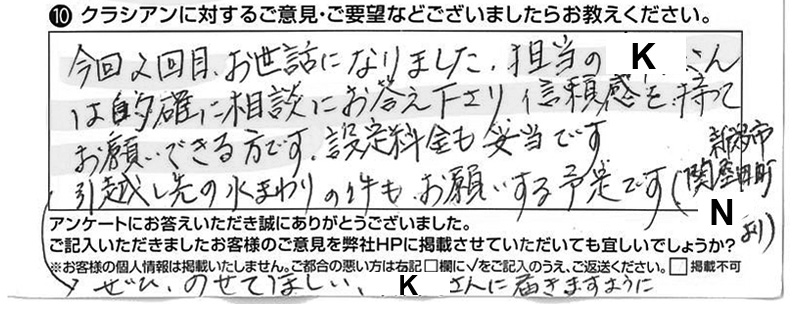 ⑩ クラシアンに対するご意見・ご要望などございましたらお教えください。
今回2回目、お世話になりました。担当の K さん
は的確に相談にお答え下さり信頼感を持て
お願いできる方です。設定料金も妥当です
引越し先の水まわりの件も、お願いする予定です(新潟市
関屋田町
N
より)
アンケートにお答えいただき誠にありがとうございました。
ご記入いただきましたお客様のご意見を弊社HPに掲載させていただいても宜しいでしょうか?
※お客様の個人情報は掲載いたしません。ご都合の悪い方は右記□欄に√をご記入のうえ、ご返送ください。□ 掲載不可
→ ぜひ、のせてほしい、K さんに届きますように